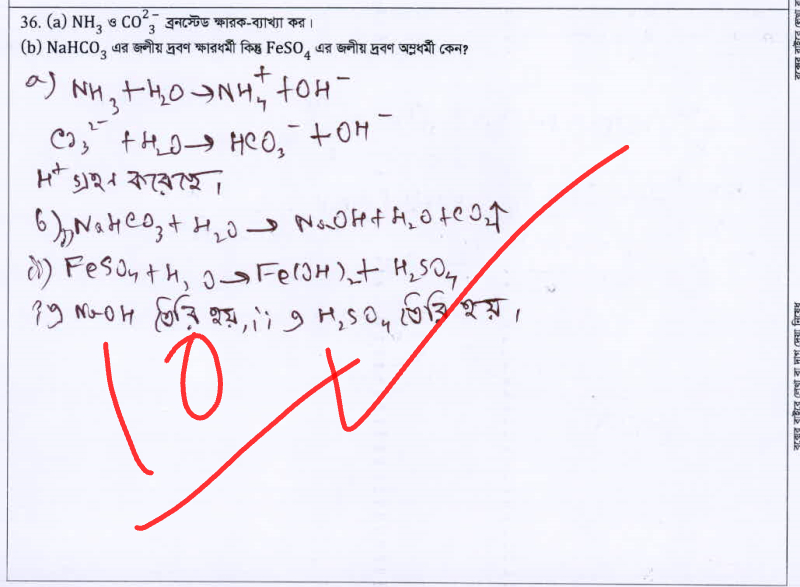 36. (a) NH₃ ও CO²⁻₃ ব্রনস্টেড ক্ষারক-ব্যাখ্যা কর।
(b) NaHCO₃ এর জলীয় দ্রবণ ক্ষারধর্মী কিন্তু FeSO₄ এর জলীয় দ্রবণ অম্লধর্মী কেন?
a) NH₃ + H₂O → NH₄⁺ + OH⁻
CO₃²⁻ + H₂O → HCO₃⁻ + OH⁻
H⁺ গ্রহণ করেছে।
b) i) NaHCO₃ + H₂O → NaOH + H₂O + CO₂↑
ii) FeSO₄ + H₂O → Fe(OH)₂ + H₂SO₄
i এ NaOH তৈরি হয়, ii এ H₂SO₄ তৈরি হয়।
10